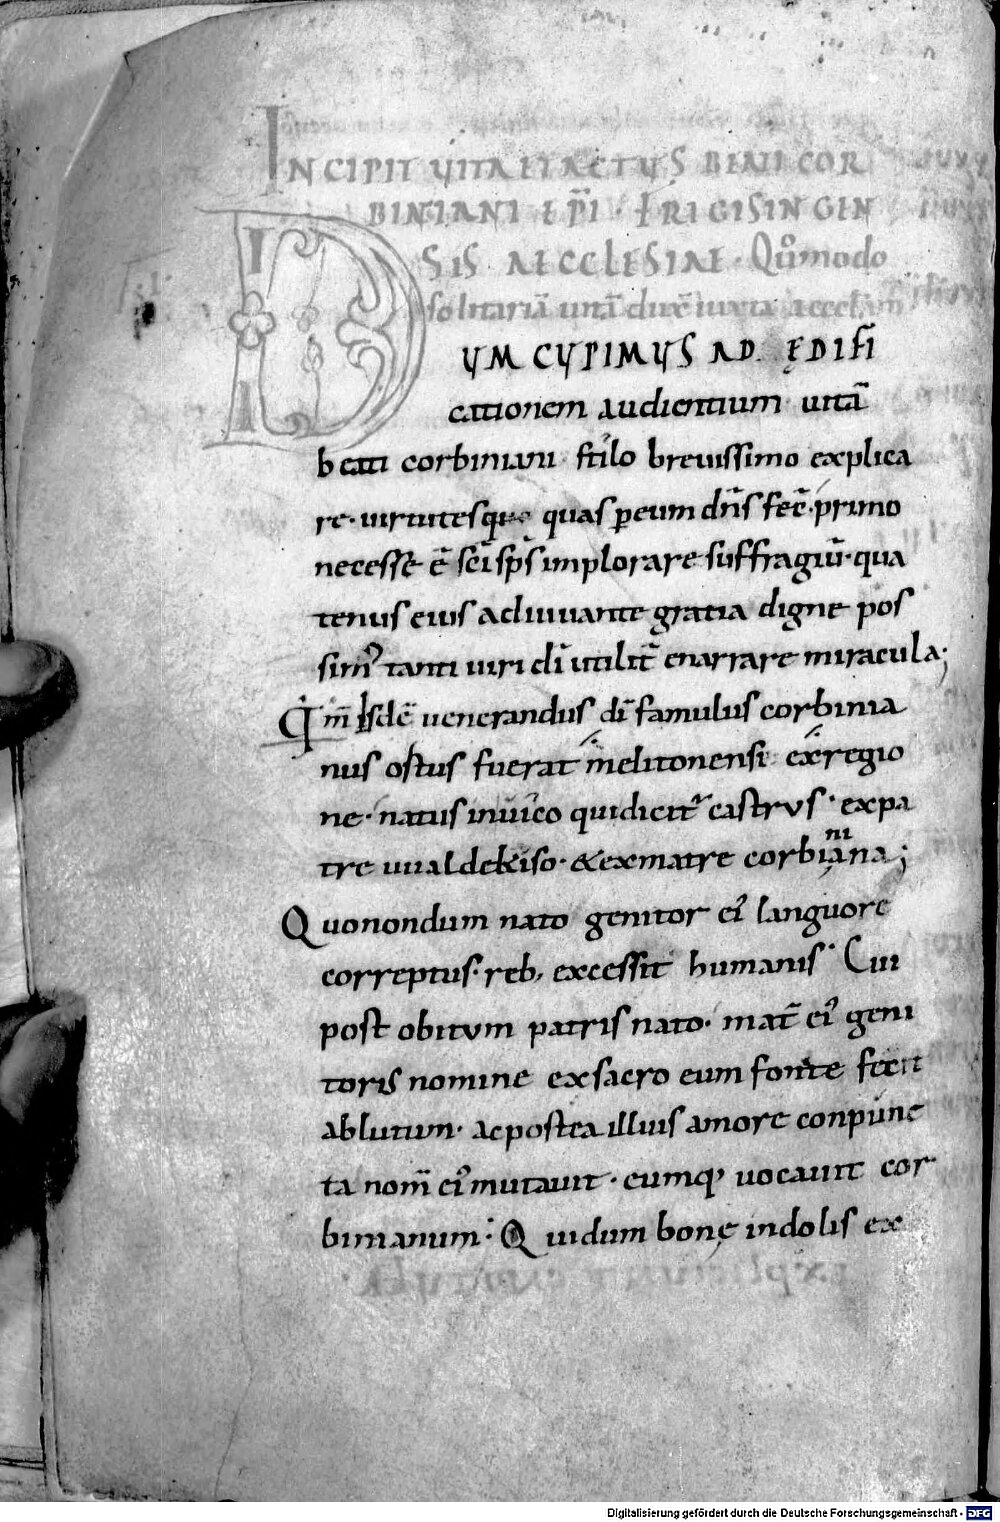 INCIPIT VITA ET ACTVS BEATI COR
BINIANI EP̄I · FRIGISINGEN
SIS AECCLESIAE · Quōmodo
solitariā uitā duxē iuxta aecclām
DVM CVPIMVS AD ĘDIFI
cationem audientium uitā
beati corbiniani stilo breuissimo explica
re · uirtutesque quas per eum dn̄s fec̄ · primo
necesse ē sc̄i sp̄s implorare suffragiū · qua
tenus eius adiuuante gratia digne pos
sim᾽ tanti uiri dī utilit̄ enarrare miracula;
Qm̄ Isdē uenerandus dī famulus corbinia
nus ostus fuerat melitonensi ex regio
ne · natus in uico qui dicit᾽ castrus · ex pa
tre uualdekiso · & ex matre corbiniana;
Quo nondum nato genitor ei᾽ languore
correptus · reb; excessit humanis · Cui
post obitum patris nato · mat̄ ei᾽ geni
toris nomine ex sacro eum fonte fecit
ablutum · ac postea illius amore conpunc
ta nom̄ ei᾽ mutauit · eumq; uocauit cor
binianum · Qui dum bonę indolis ex